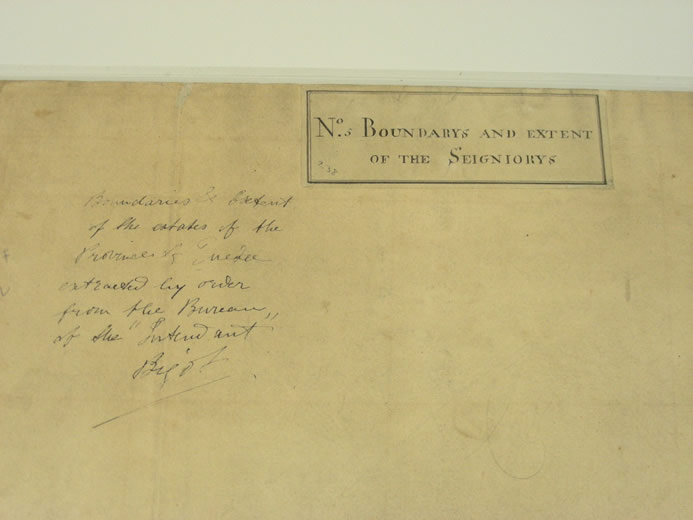 No. 5 BOUNDARYS AND EXTENT
OF THE SEIGNIORYS
Boundaries & Extent
of the estates of the
Province of Quebec
extracted by order
from the Bureau
of the "Intendant"
Bigot